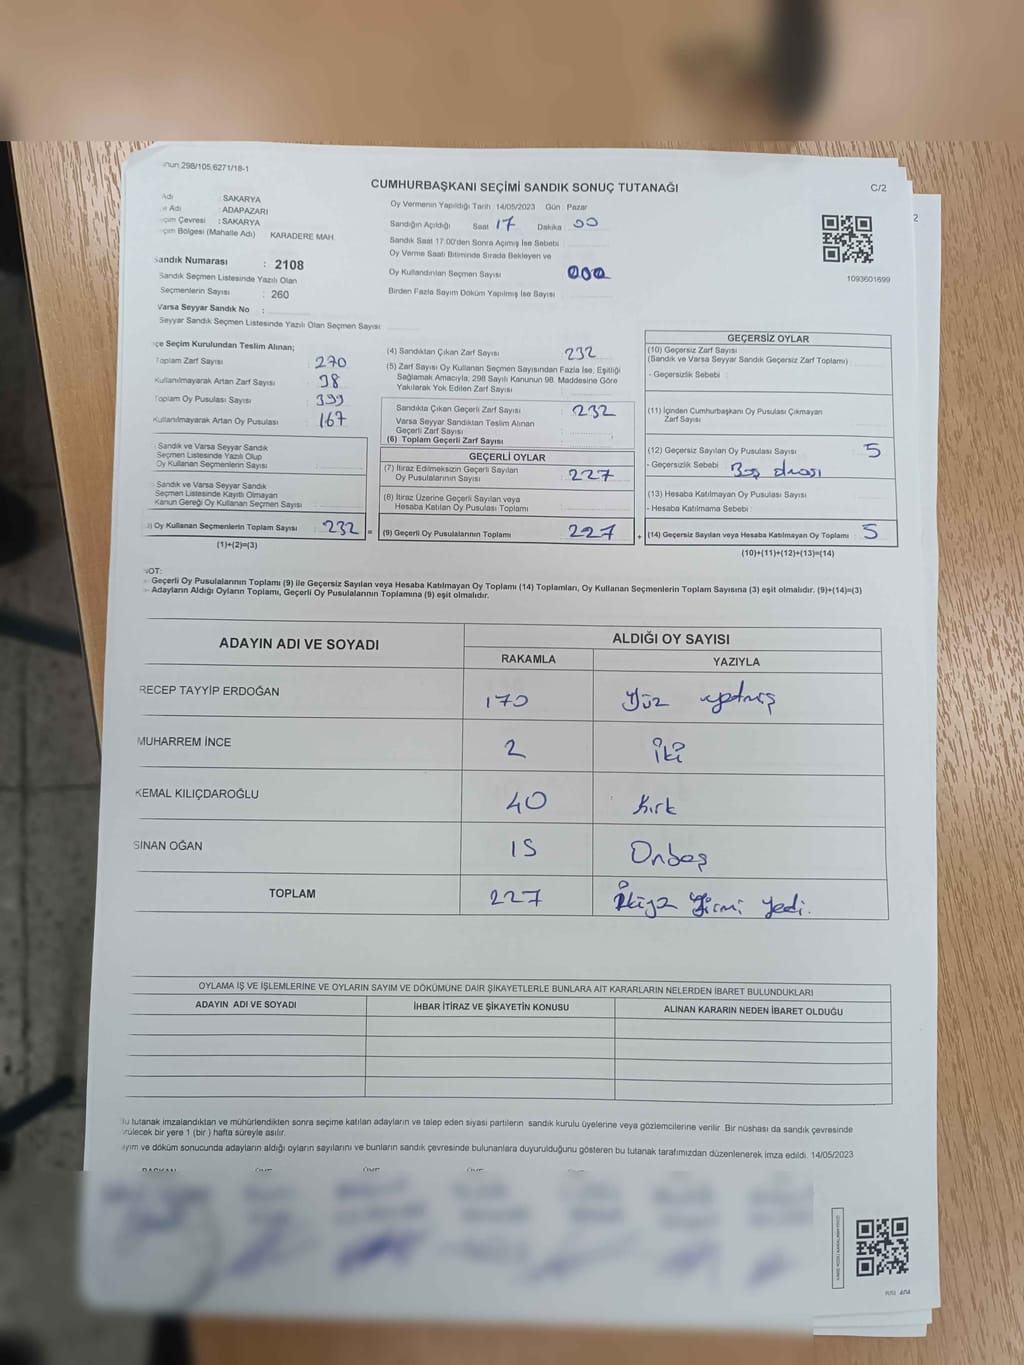 nun:298/105,6271/18-1
CUMHURBAŞKANI SEÇİMİ SANDIK SONUÇ TUTANAĞI
C/2
Adı : SAKARYA
Adı : ADAPAZARI
çim Çevresi : SAKARYA
çim Bölgesi (Mahalle Adı) KARADERE MAH.
Sandık Numarası : 2108
Sandık Seçmen Listesinde Yazılı Olan
Seçmenlerin Sayısı : 260
Varsa Seyyar Sandık No :
Seyyar Sandık Seçmen Listesinde Yazılı Olan Seçmen Sayısı:
Oy Vermenin Yapıldığı Tarih :14/05/2023 Gün : Pazar
Sandığın Açıldığı Saat : 17 Dakika : 00
Sandık Saat 17.00'den Sonra Açımış İse Sebebi :
Oy Verme Saati Bitiminde Sırada Bekleyen ve
Oy Kullandırılan Seçmen Sayısı : 000
Birden Fazla Sayım Döküm Yapılmış İse Sayısı :
1093601699
2
çe Seçim Kurulundan Teslim Alınan;
Toplam Zarf Sayısı : 270
Kullanılmayarak Artan Zarf Sayısı : 38
Toplam Oy Pusulası Sayısı : 399
Kullanılmayarak Artan Oy Pusulası : 167
Sandık ve Varsa Seyyar Sandık
Seçmen Listesinde Yazılı Olup
Oy Kullanan Seçmenlerin Sayısı :
Sandık ve Varsa Seyyar Sandık
Seçmen Listesinde Kayıtlı Olmayan
Kanun Gereği Oy Kullanan Seçmen Sayısı :
) Oy Kullanan Seçmenlerin Toplam Sayısı : 232 =
(1)+(2)=(3)
(4) Sandıktan Çıkan Zarf Sayısı : 232
(5) Zarf Sayısı Oy Kullanan Seçmen Sayısından Fazla İse, Eşitliği
Sağlamak Amacıyla; 298 Sayılı Kanunun 98. Maddesine Göre
Yakılarak Yok Edilen Zarf Sayısı :
Sandıkta Çıkan Geçerli Zarf Sayısı : 232
Varsa Seyyar Sandıktan Teslim Alınan
Geçerli Zarf Sayısı :
(6) Toplam Geçerli Zarf Sayısı :
GEÇERLİ OYLAR
(7) İtiraz Edilmeksizin Geçerli Sayılan
Oy Pusulalarının Sayısı : 227
(8) İtiraz Üzerine Geçerli Sayılan veya
Hesaba Katılan Oy Pusulası Toplamı :
(9) Geçerli Oy Pusulalarının Toplamı : 227 +
GEÇERSİZ OYLAR
(10) Geçersiz Zarf Sayısı
(Sandık ve Varsa Seyyar Sandık Geçersiz Zarf Toplamı) :
- Geçersizlik Sebebi :
(11) İçinden Cumhurbaşkanı Oy Pusulası Çıkmayan
Zarf Sayısı :
(12) Geçersiz Sayılan Oy Pusulası Sayısı : 5
- Geçersizlik Sebebi : Boş olması
(13) Hesaba Katılmayan Oy Pusulası Sayısı :
- Hesaba Katılmama Sebebi :
(14) Geçersiz Sayılan veya Hesaba Katılmayan Oy Toplamı : 5
(10)+(11)+(12)+(13)=(14)
NOT:
- Geçerli Oy Pusulalarının Toplamı (9) ile Geçersiz Sayılan veya Hesaba Katılmayan Oy Toplamı (14) Toplamları, Oy Kullanan Seçmenlerin Toplam Sayısına (3) eşit olmalıdır. (9)+(14)=(3)
- Adayların Aldığı Oyların Toplamı, Geçerli Oy Pusulalarının Toplamına (9) eşit olmalıdır.
ADAYIN ADI VE SOYADI
ALDIĞI OY SAYISI
RAKAMLA YAZIYLA
RECEP TAYYİP ERDOĞAN 170 Yüz yetmiş
MUHARREM İNCE 2 İki
KEMAL KILIÇDAROĞLU 40 Kırk
SİNAN OĞAN 15 Onbeş
TOPLAM 227 İkiyüz Yirmi Yedi.
OYLAMA İŞ VE İŞLEMLERİNE VE OYLARIN SAYIM VE DÖKÜMÜNE DAİR ŞİKAYETLERLE BUNLARA AİT KARARLARIN NELERDEN İBARET BULUNDUKLARI
ADAYIN ADI VE SOYADI İHBAR İTİRAZ VE ŞİKAYETİN KONUSU ALINAN KARARIN NEDEN İBARET OLDUĞU
u tutanak imzalandıktan ve mühürlendikten sonra seçime katılan adayların ve talep eden siyasi partilerin sandık kurulu üyelerine veya gözlemcilerine verilir. Bir nüshası da sandık çevresinde
rülecek bir yere 1 (bir ) hafta süreyle asılır.
ayım ve döküm sonucunda adayların aldığı oyların sayılarını ve bunların sandık çevresinde bulunanlara duyurulduğunu gösteren bu tutanak tarafımızdan düzenlenerek imza edildi. 14/05/2023
BAŞKAN ÜYE ÜYE ÜYE